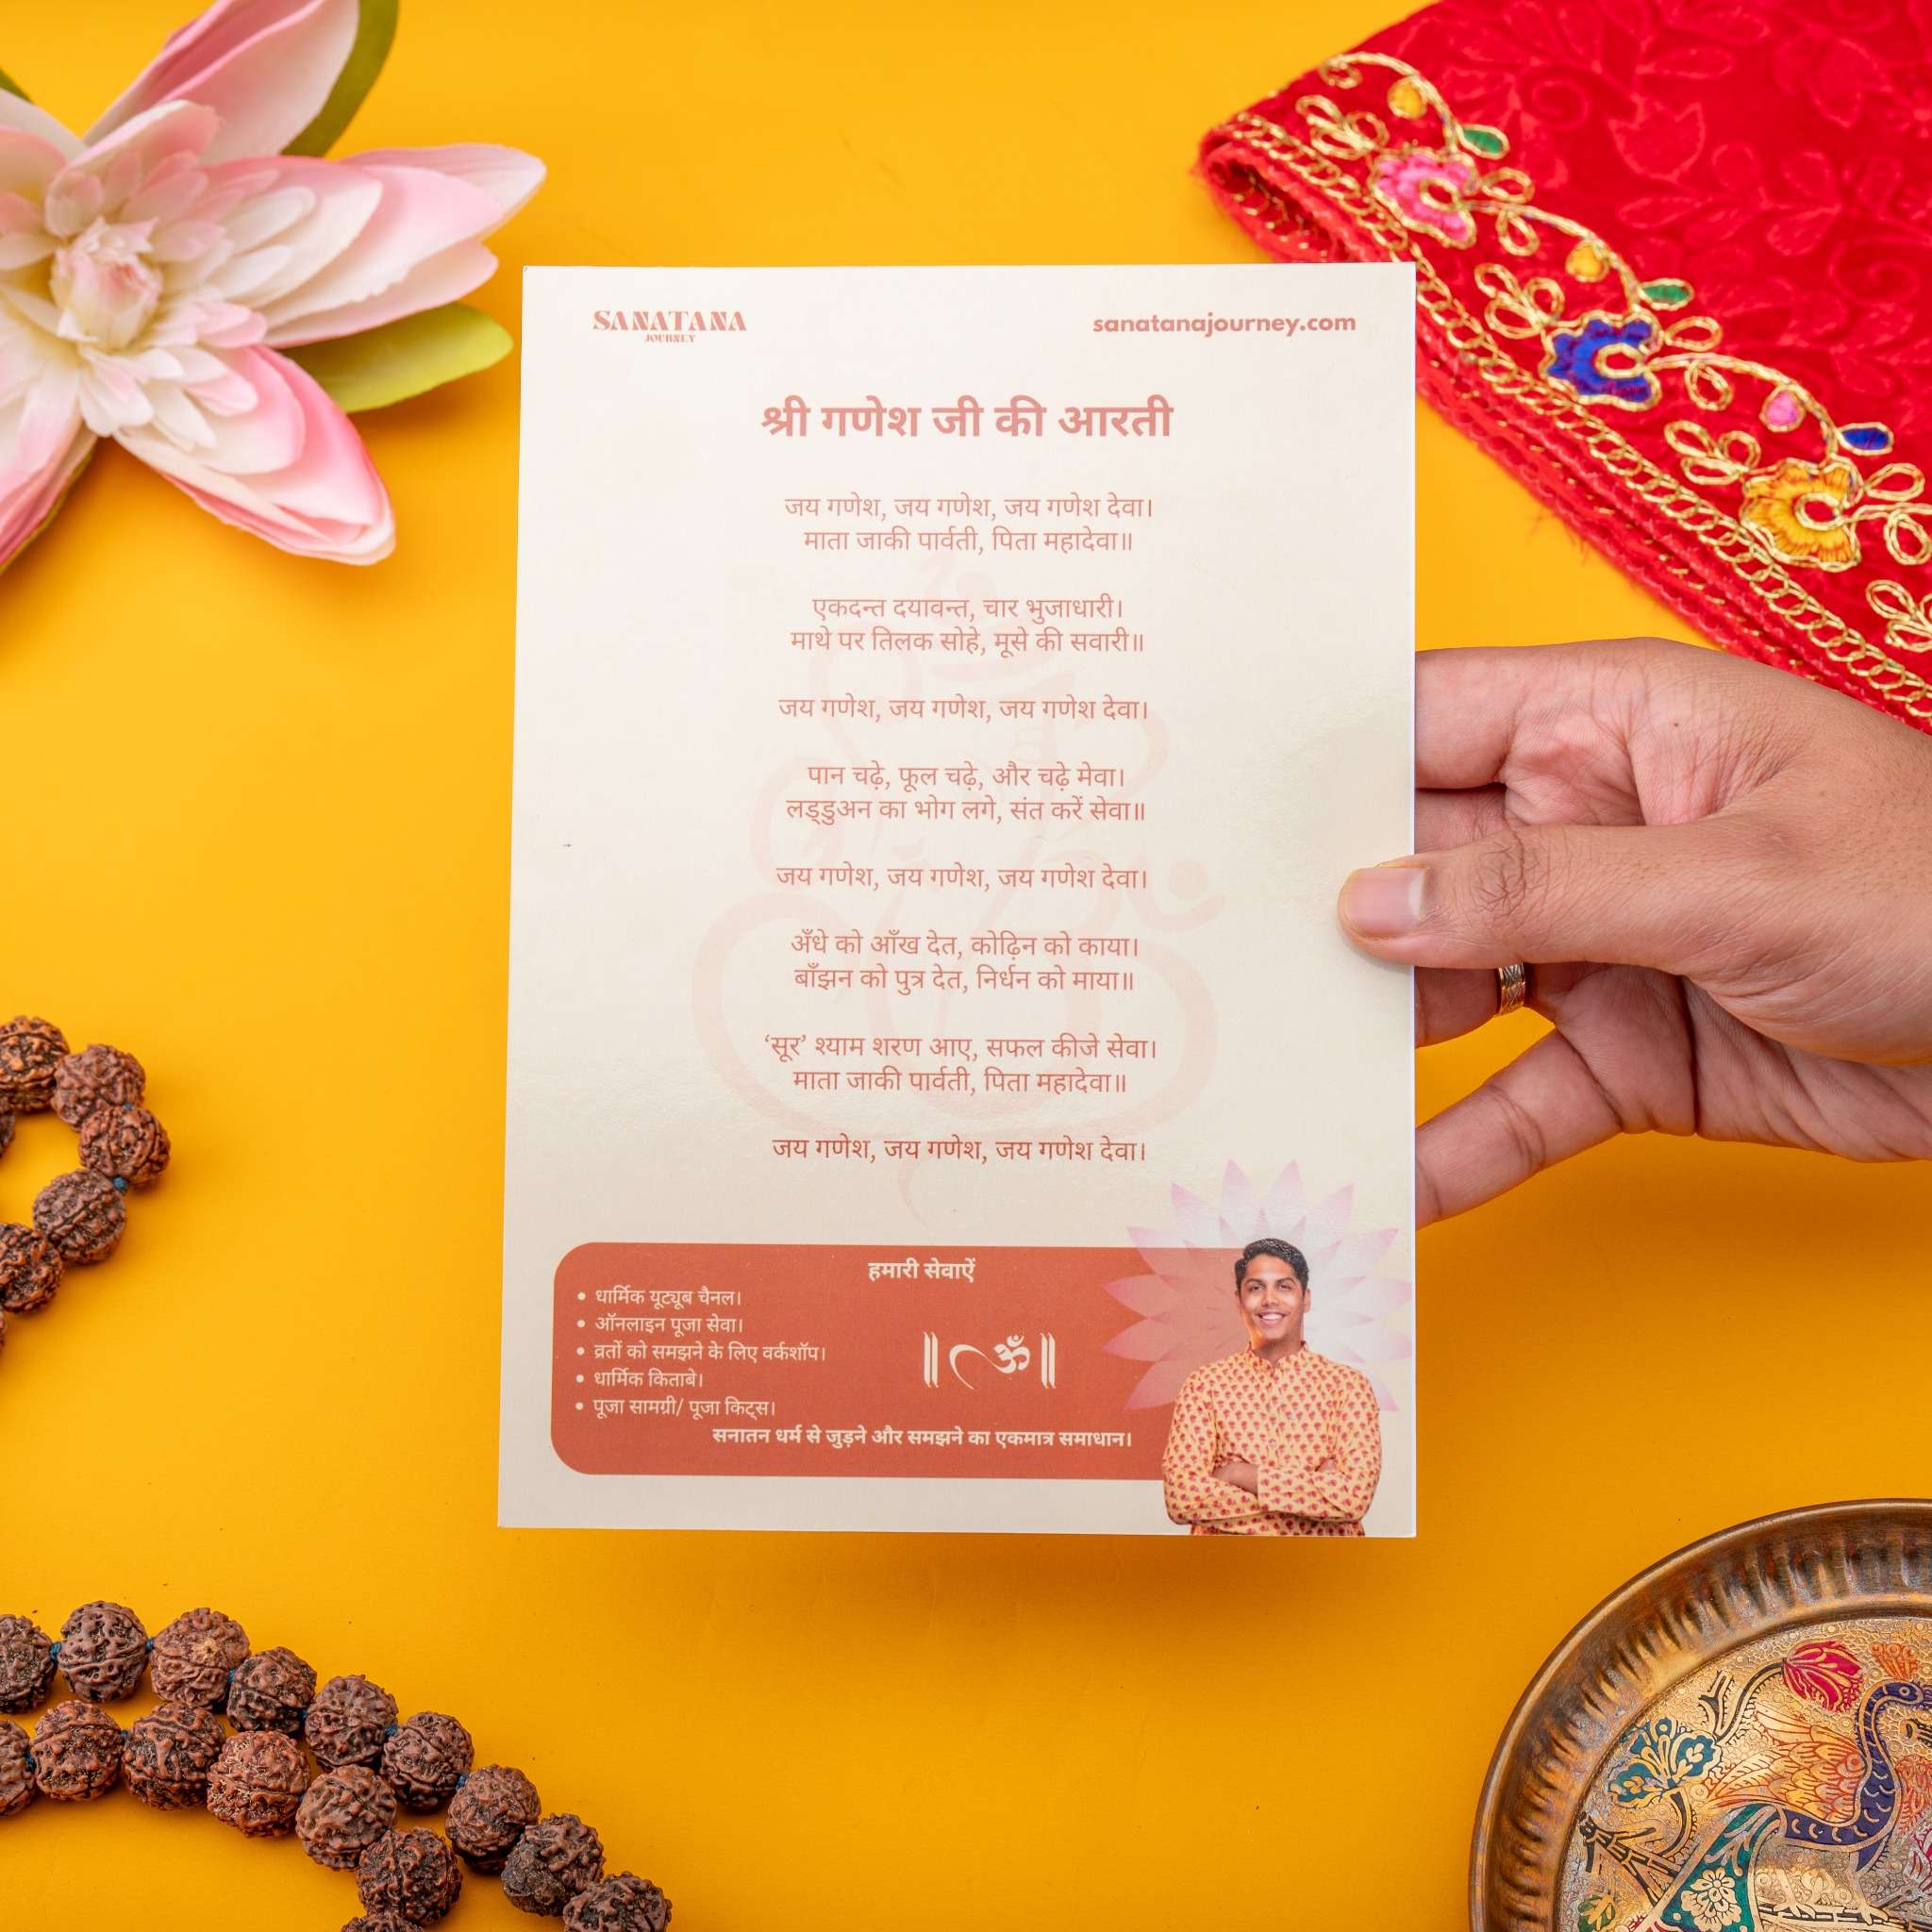 SANATANA
JOURNEY
sanatanajourney.com
श्री गणेश जी की आरती
जय गणेश, जय गणेश, जय गणेश देवा।
माता जाकी पार्वती, पिता महादेवा॥
एकदन्त दयावन्त, चार भुजाधारी।
माथे पर तिलक सोहे, मूसे की सवारी॥
जय गणेश, जय गणेश, जय गणेश देवा।
पान चढ़े, फूल चढ़े, और चढ़े मेवा।
लड्डुअन का भोग लगे, संत करें सेवा॥
जय गणेश, जय गणेश, जय गणेश देवा।
अँधे को आँख देत, कोढ़िन को काया।
बाँझन को पुत्र देत, निर्धन को माया॥
‘सूर’ श्याम शरण आए, सफल कीजे सेवा।
माता जाकी पार्वती, पिता महादेवा॥
जय गणेश, जय गणेश, जय गणेश देवा।
हमारी सेवाऐं
• धार्मिक यूट्यूब चैनल।
• ऑनलाइन पूजा सेवा।
• व्रतों को समझने के लिए वर्कशॉप।
• धार्मिक किताबे।
• पूजा सामग्री/ पूजा किट्स।
॥ ॐ ॥
सनातन धर्म से जुड़ने और समझने का एकमात्र समाधान।